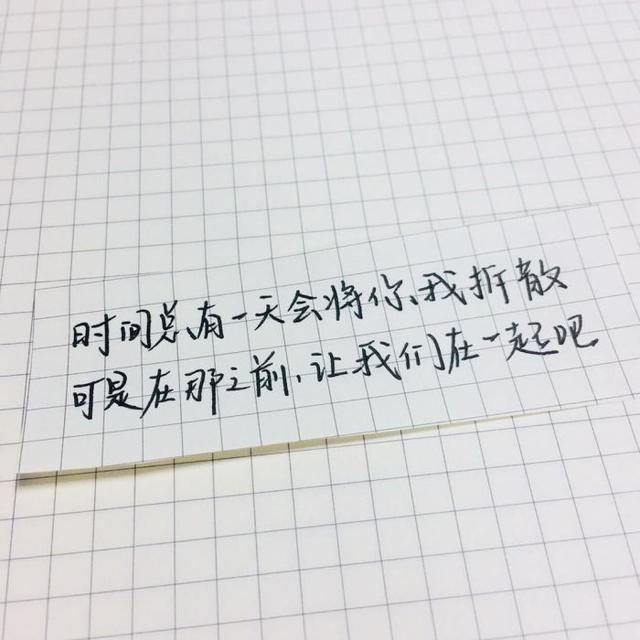 时间总有一天会将你、我拆散
可是在那之前,让我们在一起吧